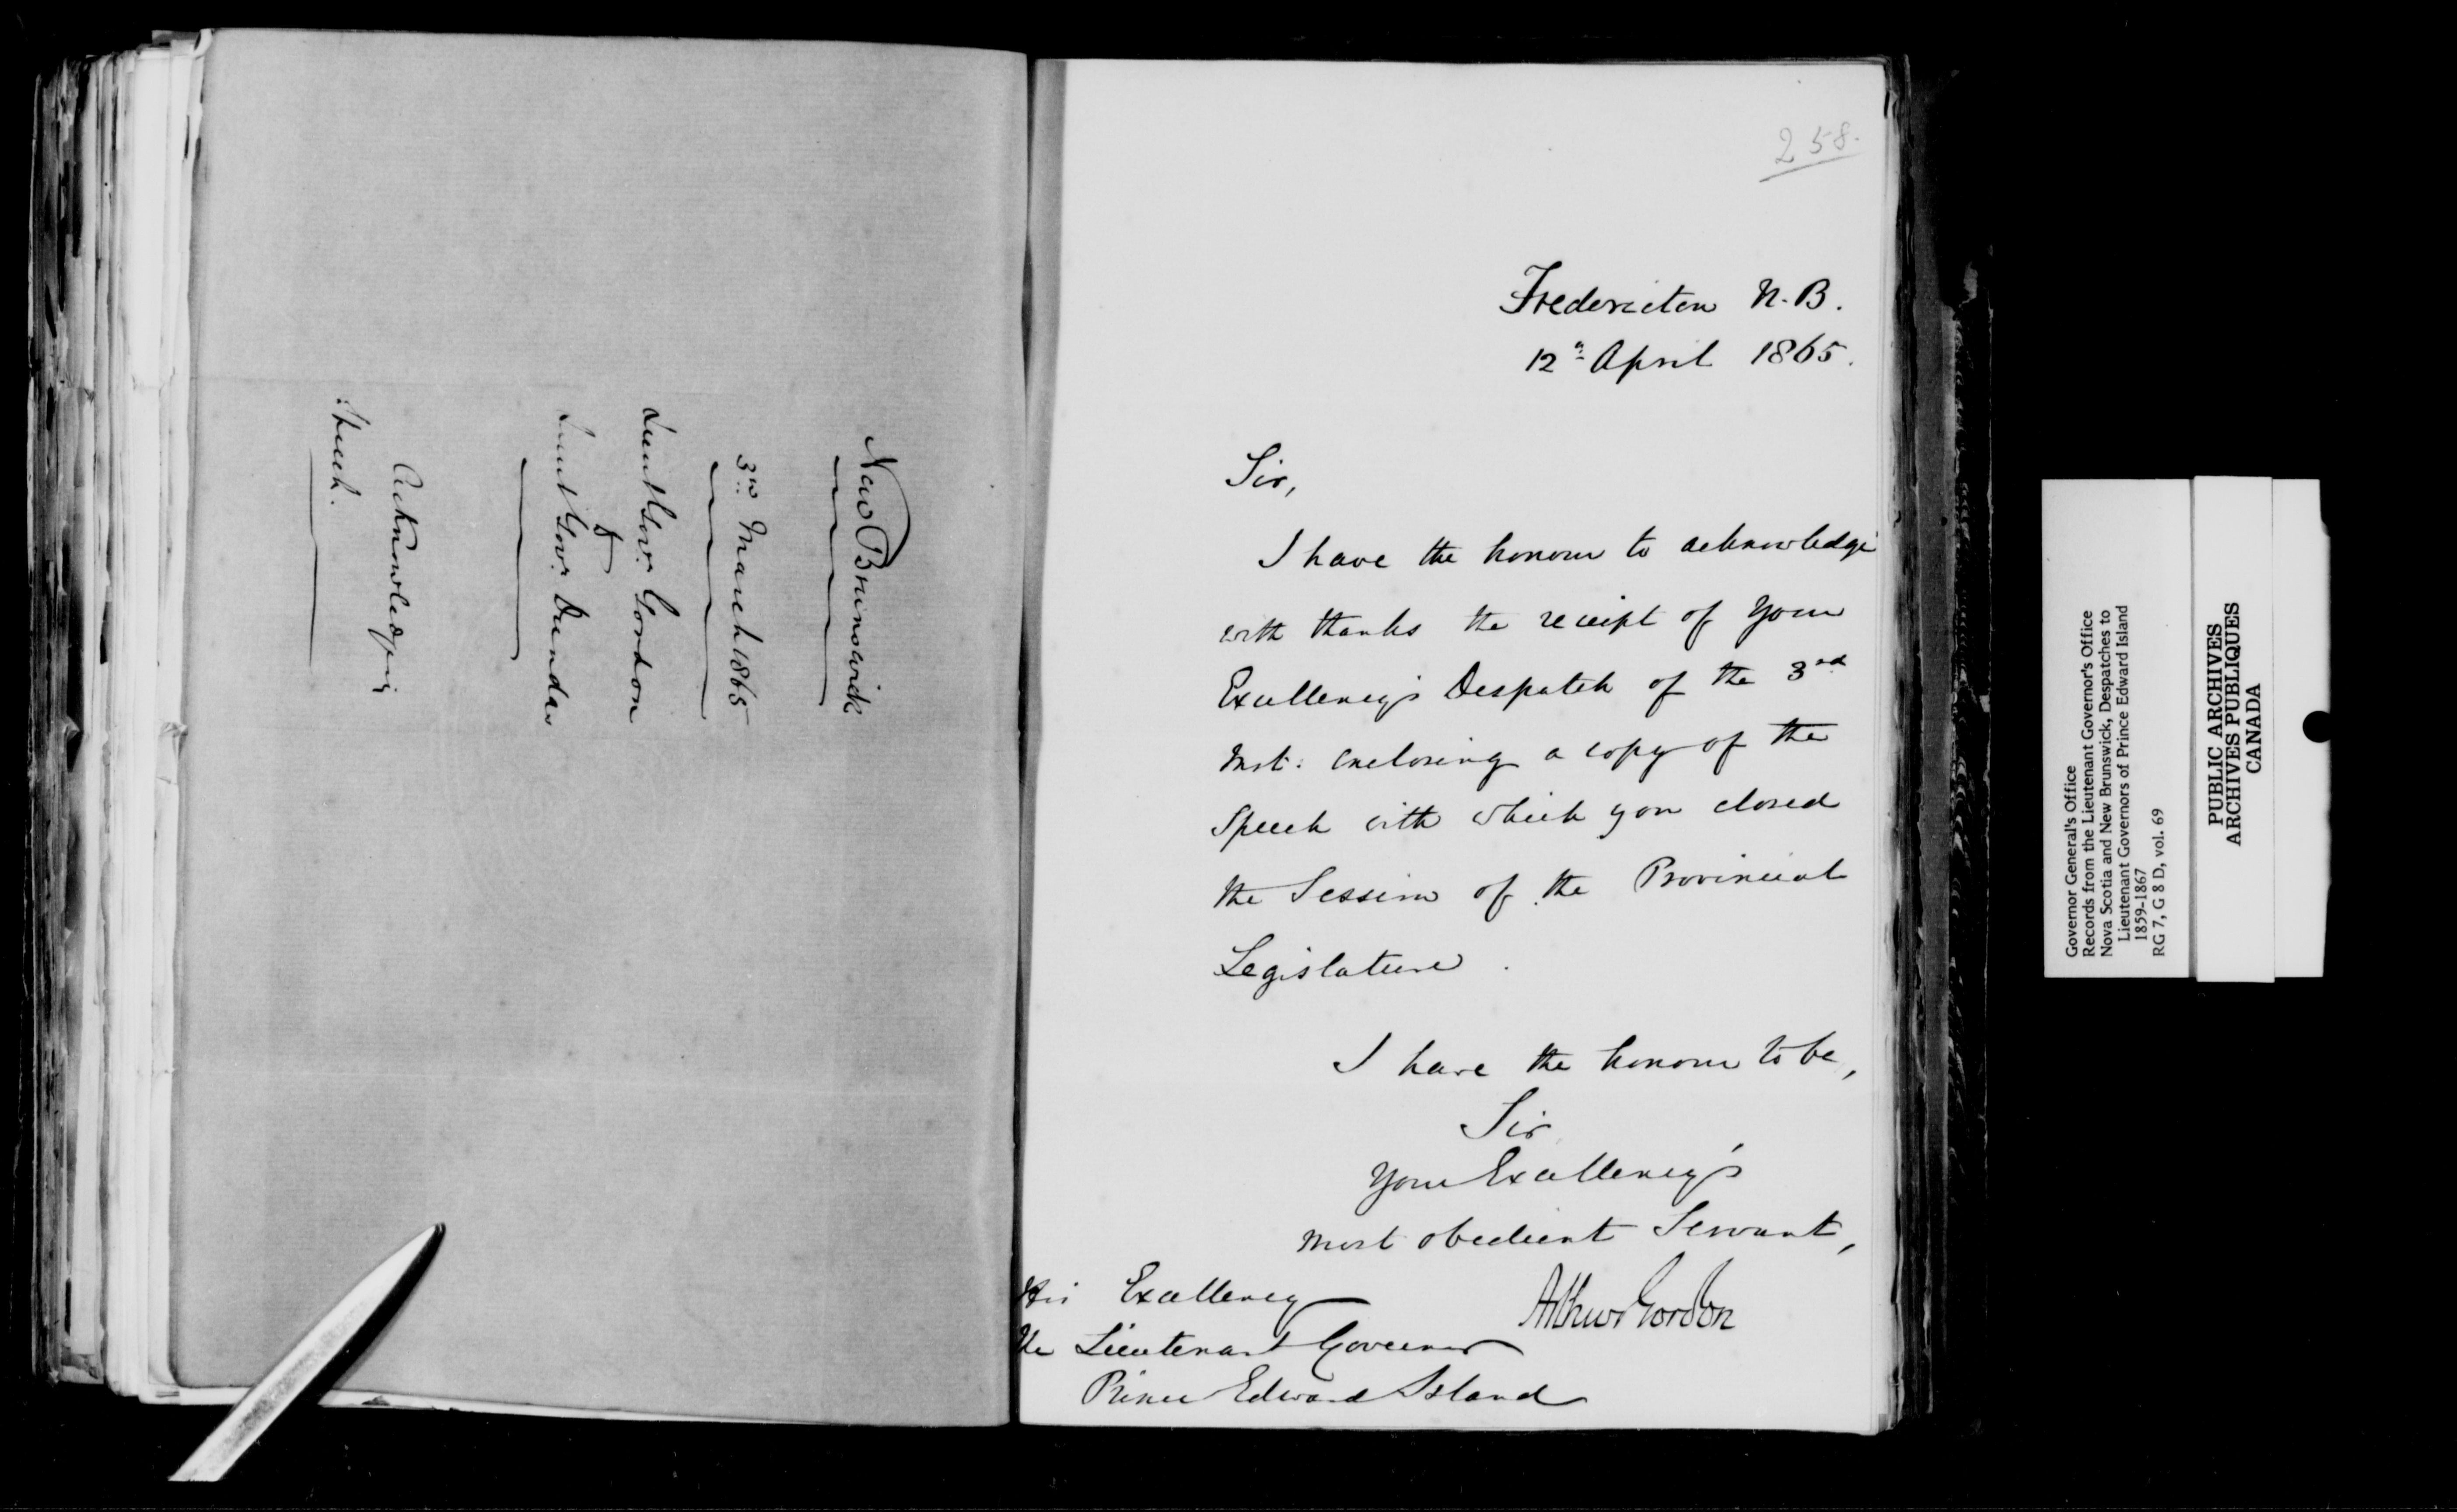 New Brunswick
3rd March 1865
Lieut Govr. Gordon
to
Lieut Govr. Dundas
Acknowledging
Speech.
258.
Fredericton N.B.
12th April 1865.
Sir,
I have the honour to acknowledge
with thanks the receipt of Your
Excellency's Despatch of the 3rd
Inst: enclosing a copy of the
Speech with which you closed
the Session of the Provincial
Legislature.
I have the honour to be,
Sir
Your Excellency's
most obedient Servant,
Arthur Gordon
His Excellency
The Lieutenant Governor
Prince Edward Island
Governor General's Office
Records from the Lieutenant Governor's Office
Nova Scotia and New Brunswick, Despatches to
Lieutenant Governors of Prince Edward Island
1859-1867
RG 7, G 8 D, vol. 69
PUBLIC ARCHIVES
ARCHIVES PUBLIQUES
CANADA